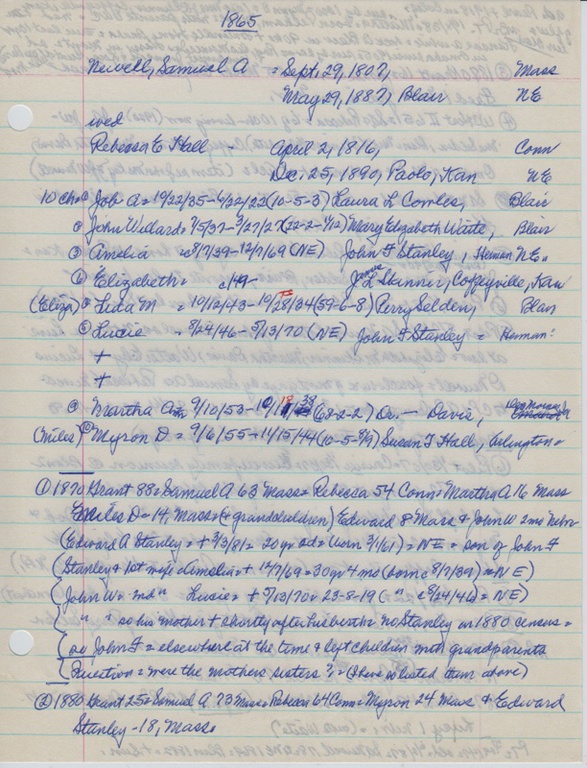 1865
Newell, Samuel A = Sept. 29, 1807, Mass
May 29, 1887, Blair NE
wed
Rebecca E Hall - April 2, 1816, Conn
Dec. 25, 1890, Paolo, Kan NE
10 Ch= Job A = 10/22/35- /22/22 (10-5-3) Laura L Combes, Blair
John Willard = 7/5/37- 3/27/27 Mary Elizabeth Waite, Blair
Amelia = c8/7/39-12/7/69 (NE) John F Stanley, Herman NE.
Elizabeth = c/49- James L Skinner, Coffeyville, Kan
(Eliza) Lida M = 10/12/43-10/28/34 (59-6-8) Perry Selden, Blair
Lucie = 8/24/46-5/13/70 (NE) John F Stanley = Herman
+
+
Martha A 9/10/53- (68-2-2) Dr. — Davis,
(Miles) Myron D = 9/6/55-11/15/44 (10-5-8/9) Susan F Hall, Arlington
① 1870 Grant 88= Samuel A 63 Mass= Rebecca 54 Conn= Martha A 16 Mass
Miles D=14, Mass= (+ grandchildren) Edward 8 Mass & John W 2mo Nebr
(Edward A Stanley = + 3/3/81= 20yr = (born 3/1/61) = NE = son of John F
(Stanley & 1st wife Amelia = + 12/7/69=30yr 4 mo (born c 8/7/39) = NE)
(John W = " Lucie = + 5/13/70= 23-8-19 ( " c 8/24/46) = NE)
" " so his mother + shortly after his birth = no Stanley on 1880 census =
so John F = elsewhere at the time & left children with grandparents
(Question = were the mothers sisters? = (I have so listed them above)
② 1880 Grant 25= Samuel A 73 Mass= Rebecca 64 Conn= Myron 24 Mass & Edward
Stanley -18, Mass.